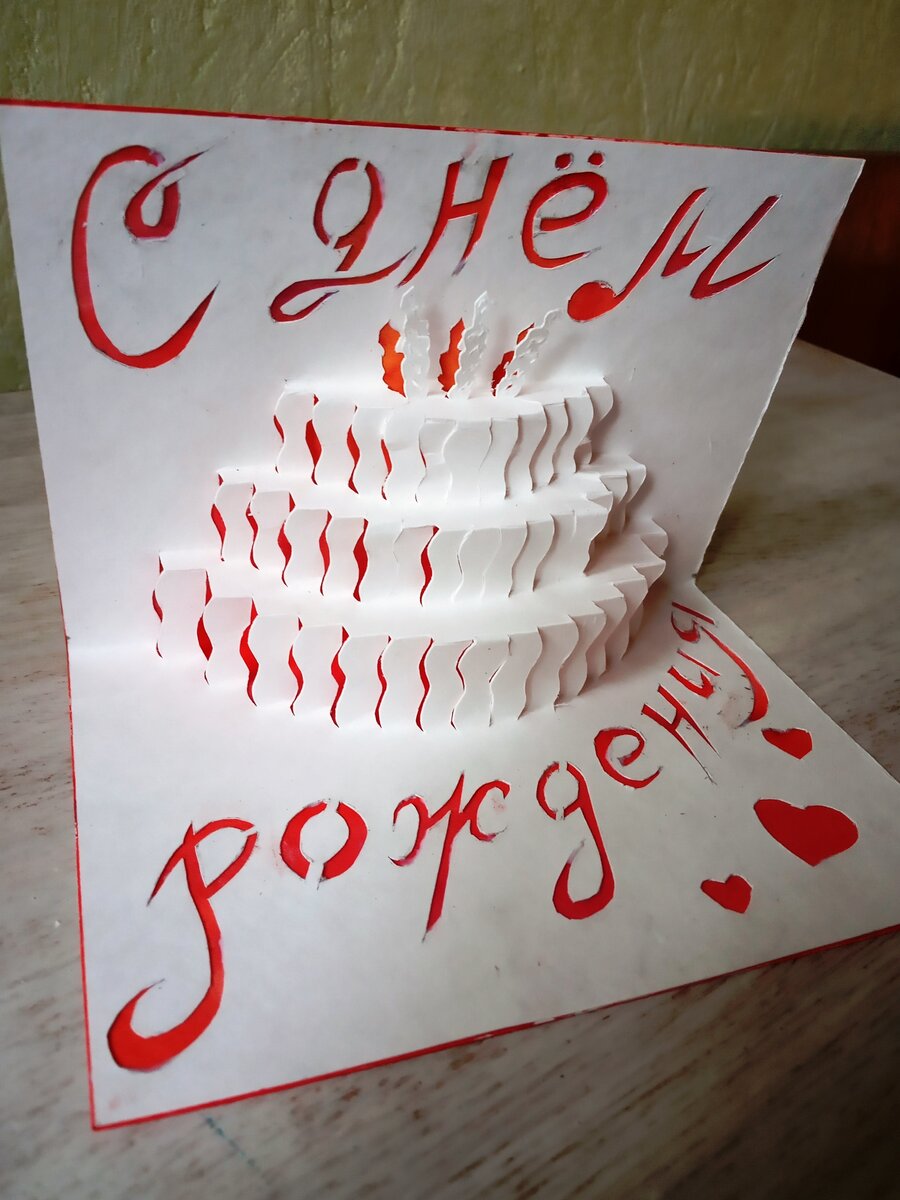 С днём
рождения